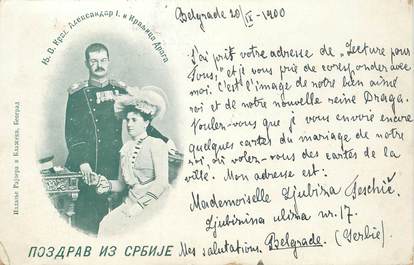 Њ. В. Краљ Александар I. и Краљица Драга
Издање Рајнера и Блажека, Београд
ПОЗДРАВ ИЗ СРБИЈЕ
Belgrade 20/IX - 1900
J'ai prit votre adresse de „Lecture pour
tous," et je vous prie de correspondre avec
moi. C'est l'image de notre bien aimé
roi et de notre nouvelle reine Draga.
Voulez-vous que je vous envoie encore
quelques cartes du mariage de notre
roi, ou volez-vous des cartes de la
ville. Mon adresse est:
Mademoiselle Ljubiza Jeschič.
Ljubinina uliza nr. 17.
Mes salutations. Belgrade. (Serbie).